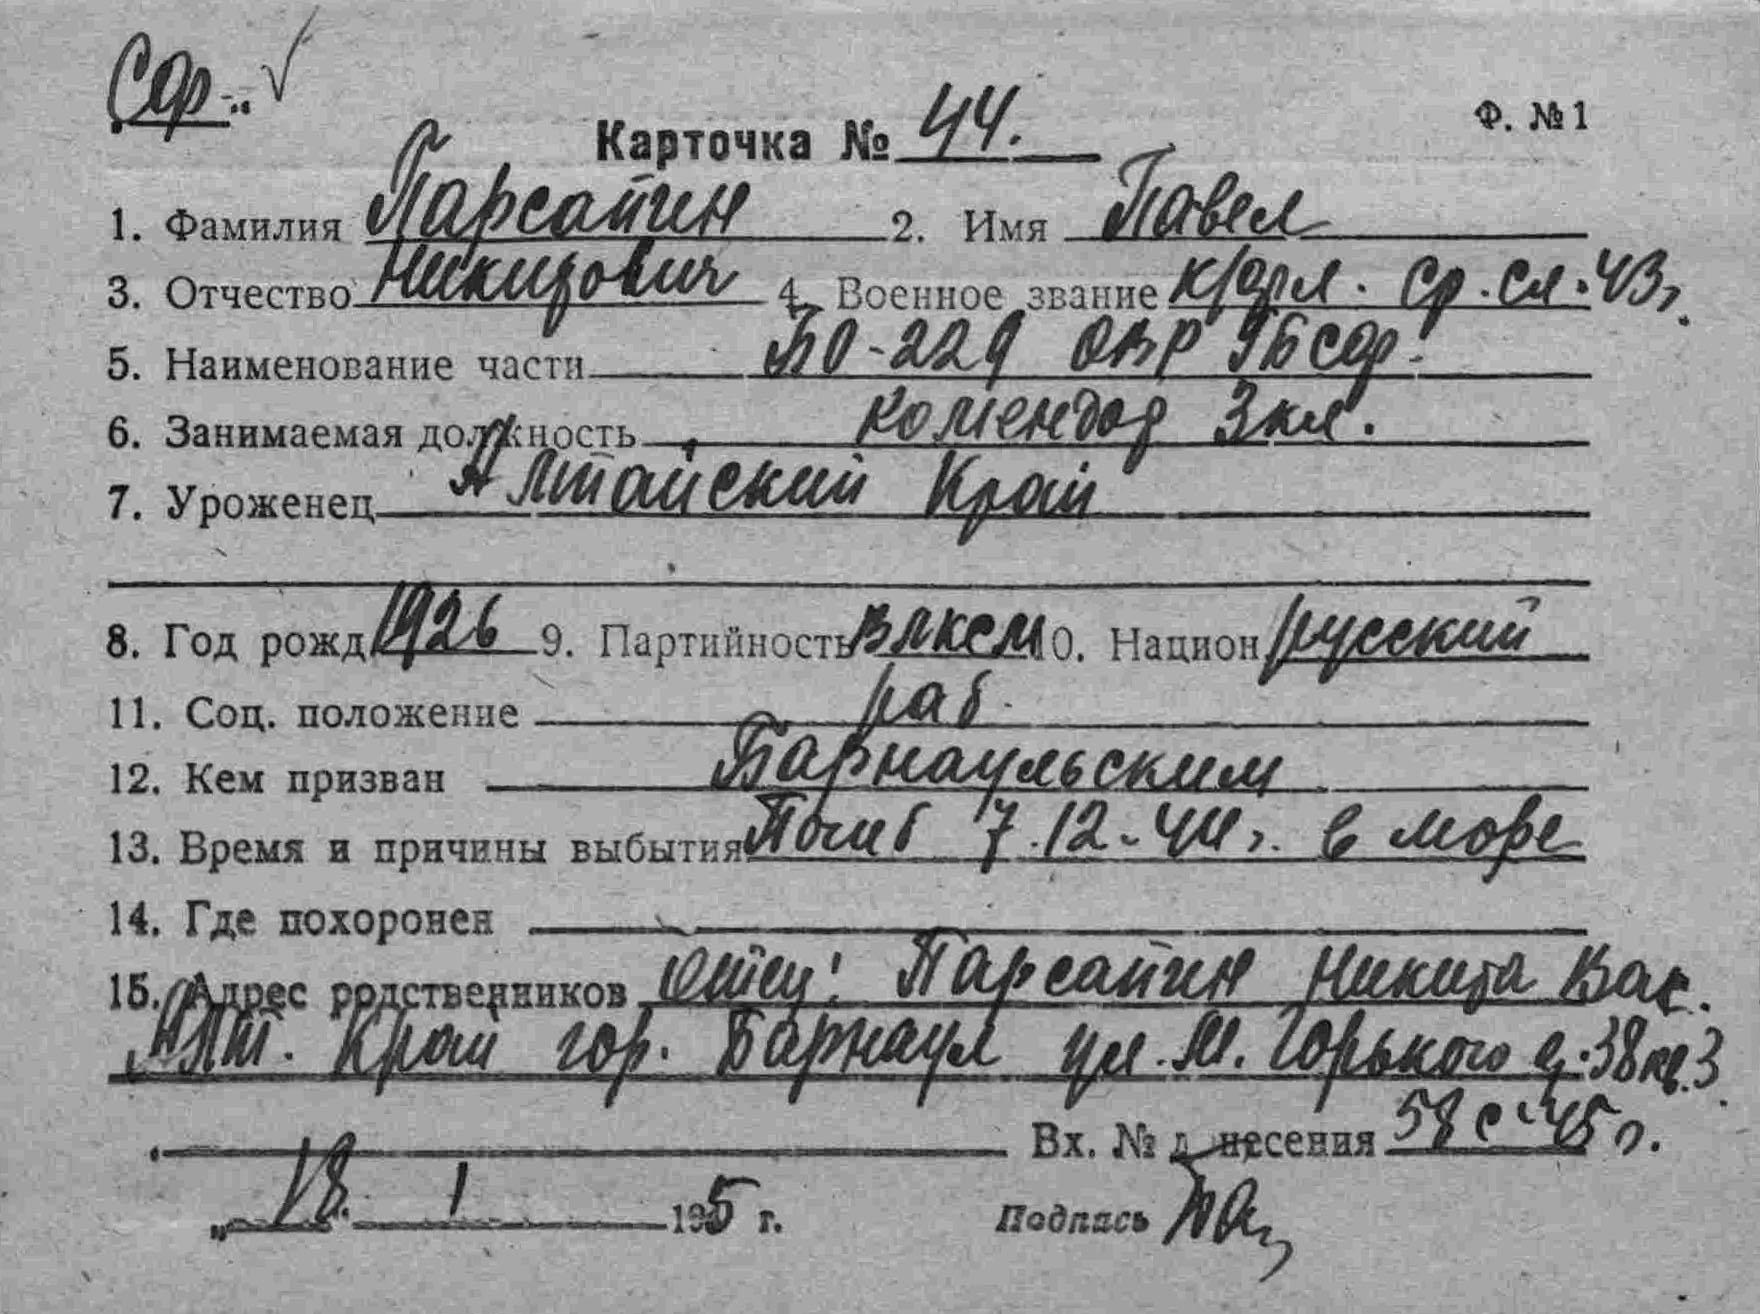 Сф.. √
Карточка № 44. Ф. №1
1. Фамилия Парсапин 2. Имя Павел
3. Отчество Никитович 4. Военное звание кр/фл. ср. сл. 43г.
5. Наименование части БО-229 ОВР ПБ СФ.
6. Занимаемая должность комендор 3 кл.
7. Уроженец Алтайский Край
8. Год рожд 1926 9. Партийность ВЛКСМ 10. Национ русский
11. Соц. положение раб.
12. Кем призван Барнаульским
13. Время и причины выбытия Погиб 7.12-44г. в море
14. Где похоронен
15. Адрес родственников отец: Парсапин Никита Вас.
Алт. Край гор. Барнаул ул. М. Горького д. 38 кв. 3
Вх. № д несения 58 с-45 г.
„18. 1 195 г. Подпись